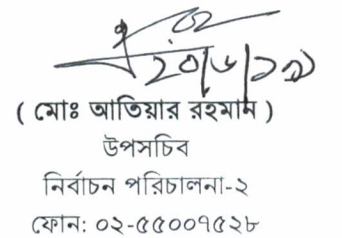 ২০/৬/১৯
( মোঃ আতিয়ার রহমান )
উপসচিব
নির্বাচন পরিচালনা-২
ফোন: ০২-৫৫০০৭৫২৮